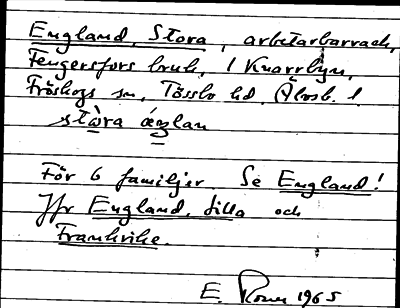 England, Stora, arbetarbarack,
Fengersfors bruk, i Knarrbyn,
Fröskogs sn, Tössbo hd, Älvsb. l.
stòra ængland
För 6 familjer Se England!
Jfr England, Lilla och
Frankrike.
E. 1965